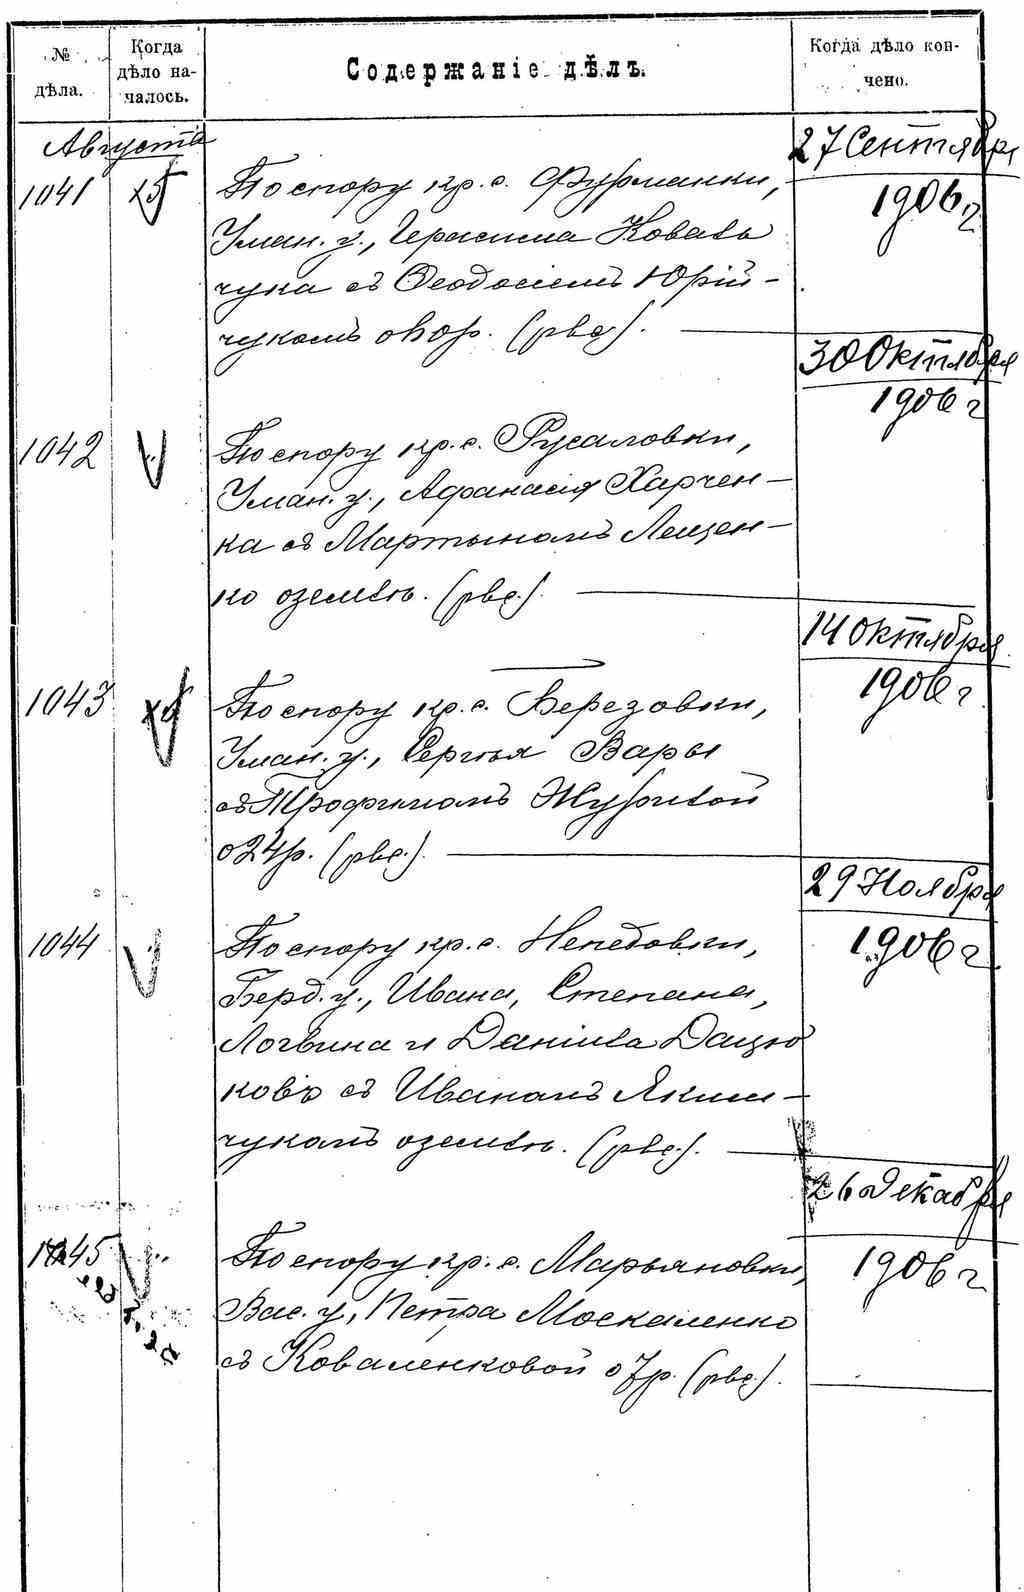 № дѣла.
Когда дѣло на-
чалось.
Содержаніе дѣлъ.
Когда дѣло кон-
чено.
Августа
27 Сентября
1906 г
1041
По спору кр. с. Фурманки,
Уман. у., Герасима Коваль
чука съ Ѳеодосіемъ Юрій-
чукомъ
30 Октября
1906 г
1042
По спору кр. с. Русаловки,
Уман. у., Афанасія Харчен-
ка съ Мартыномъ Лещен-
ко о землѣ.
14 Октября
1906 г
1043
По спору кр. с. Березовки,
Уман. у., Сергѣя Вары
съ Трофимомъ Журбой
о 24 р.
29 Ноября
1906 г
1044
По спору кр. с. Непедовки,
Берд. у., Ивана, Степана,
Логвина и Даніила Дацю
ковъ съ Иваномъ Яким-
чукомъ о землѣ.
26 Декабря
1906 г
1045
По спору кр. с. Марьяновки,
Вас. у, Петра Москаленко
съ Коваленковой о 7 р.